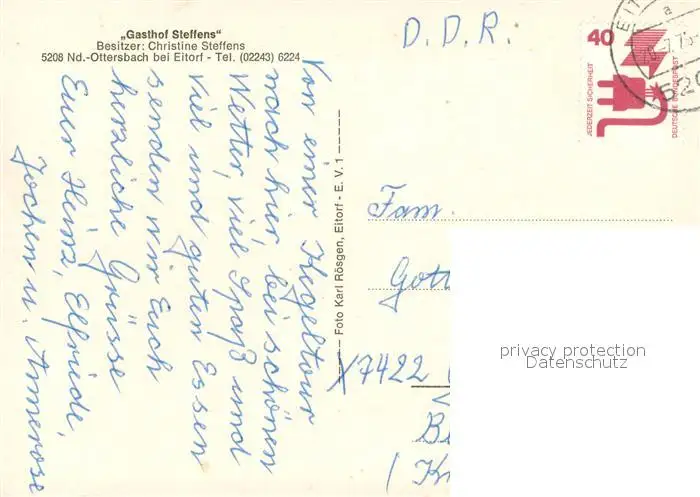 „Gasthof Steffens“
Besitzer: Christine Steffens
5208 Nd.-Ottersbach bei Eitorf - Tel. (02243) 6224
Von einer Kegeltour
nach hier, bei schönen
Wetter, viel Spaß und
viel und guten Essen
senden wir Euch
herzliche Grüsse
Euer Heinz, Elfriede,
Jochen u. Annerose
Foto Karl Rösgen, Eitorf - E. V. 1
D. D. R.
40
JEDERZEIT SICHERHEIT
DEUTSCHE BUNDESPOST
EIT
a
7.75-
520
Fam.
Gott
X7422
B
(Kr
privacy protection
Datenschutz